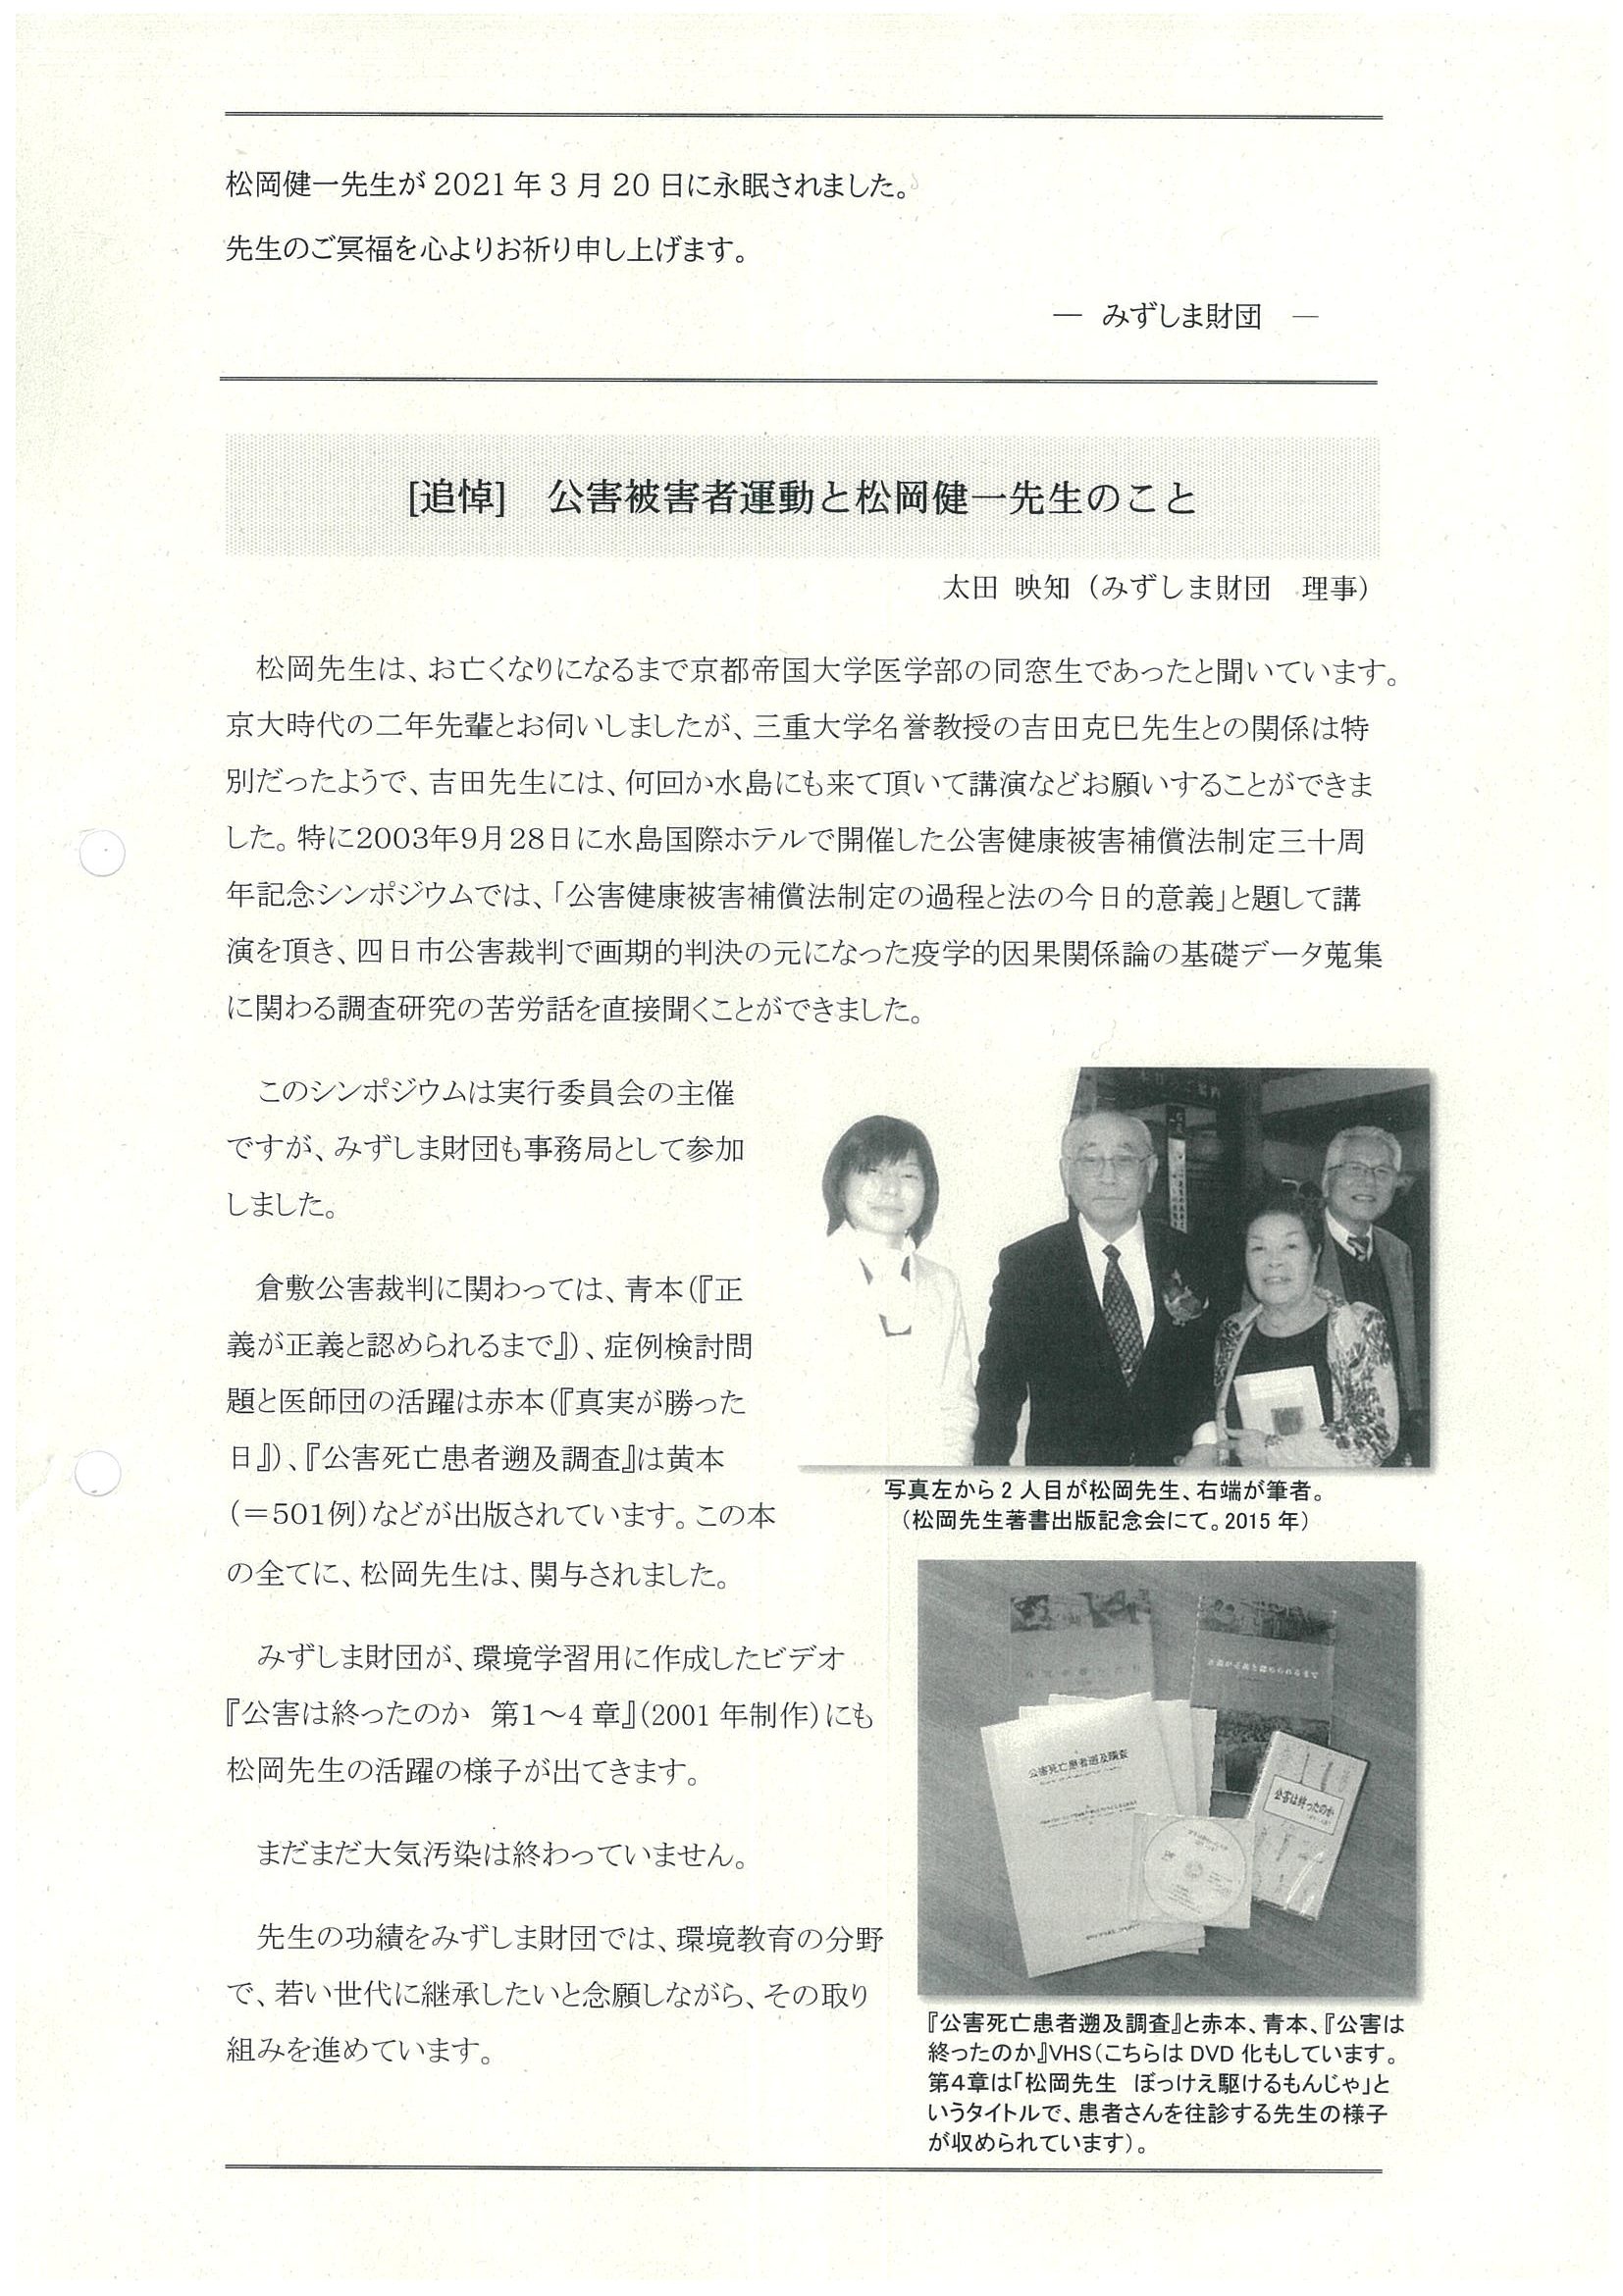 松岡健一先生が 2021 年 3 月 20 日に永眠されました。
先生のご冥福を心よりお祈り申し上げます。
― みずしま財団 ―
[追悼] 公害被害者運動と松岡健一先生のこと
太田 映知（みずしま財団 理事）
松岡先生は、お亡くなりになるまで京都帝国大学医学部の同窓生であったと聞いています。
京大時代の二年先輩とお伺いしましたが、三重大学名誉教授の吉田克巳先生との関係は特
別だったようで、吉田先生には、何回か水島にも来て頂いて講演などお願いすることができま
した。特に2003年9月28日に水島国際ホテルで開催した公害健康被害補償法制定三十周
年記念シンポジウムでは、「公害健康被害補償法制定の過程と法の今日的意義」と題して講
演を頂き、四日市公害裁判で画期的判決の元になった疫学的因果関係論の基礎データ蒐集
に関わる調査研究の苦労話を直接聞くことができました。
このシンポジウムは実行委員会の主催
ですが、みずしま財団も事務局として参加
しました。
倉敷公害裁判に関わっては、青本（『正
義が正義と認められるまで』）、症例検討問
題と医師団の活躍は赤本（『真実が勝った
日』）、『公害死亡患者遡及調査』は黄本
（＝501例）などが出版されています。この本
の全てに、松岡先生は、関与されました。
みずしま財団が、環境学習用に作成したビデオ
『公害は終ったのか 第1～4 章』（2001 年制作）にも
松岡先生の活躍の様子が出てきます。
まだまだ大気汚染は終わっていません。
先生の功績をみずしま財団では、環境教育の分野
で、若い世代に継承したいと念願しながら、その取り
組みを進めています。
写真左から 2 人目が松岡先生、右端が筆者。
（松岡先生著書出版記念会にて。2015 年）
正義が正義と認められるまで
公害死亡患者遡及調査
公害は終ったのか
『公害死亡患者遡及調査』と赤本、青本、『公害は
終ったのか』VHS（こちらは DVD 化もしています。
第4章は「松岡先生 ぼっけえ駆けるもんじゃ」と
いうタイトルで、患者さんを往診する先生の様子
が収められています）。